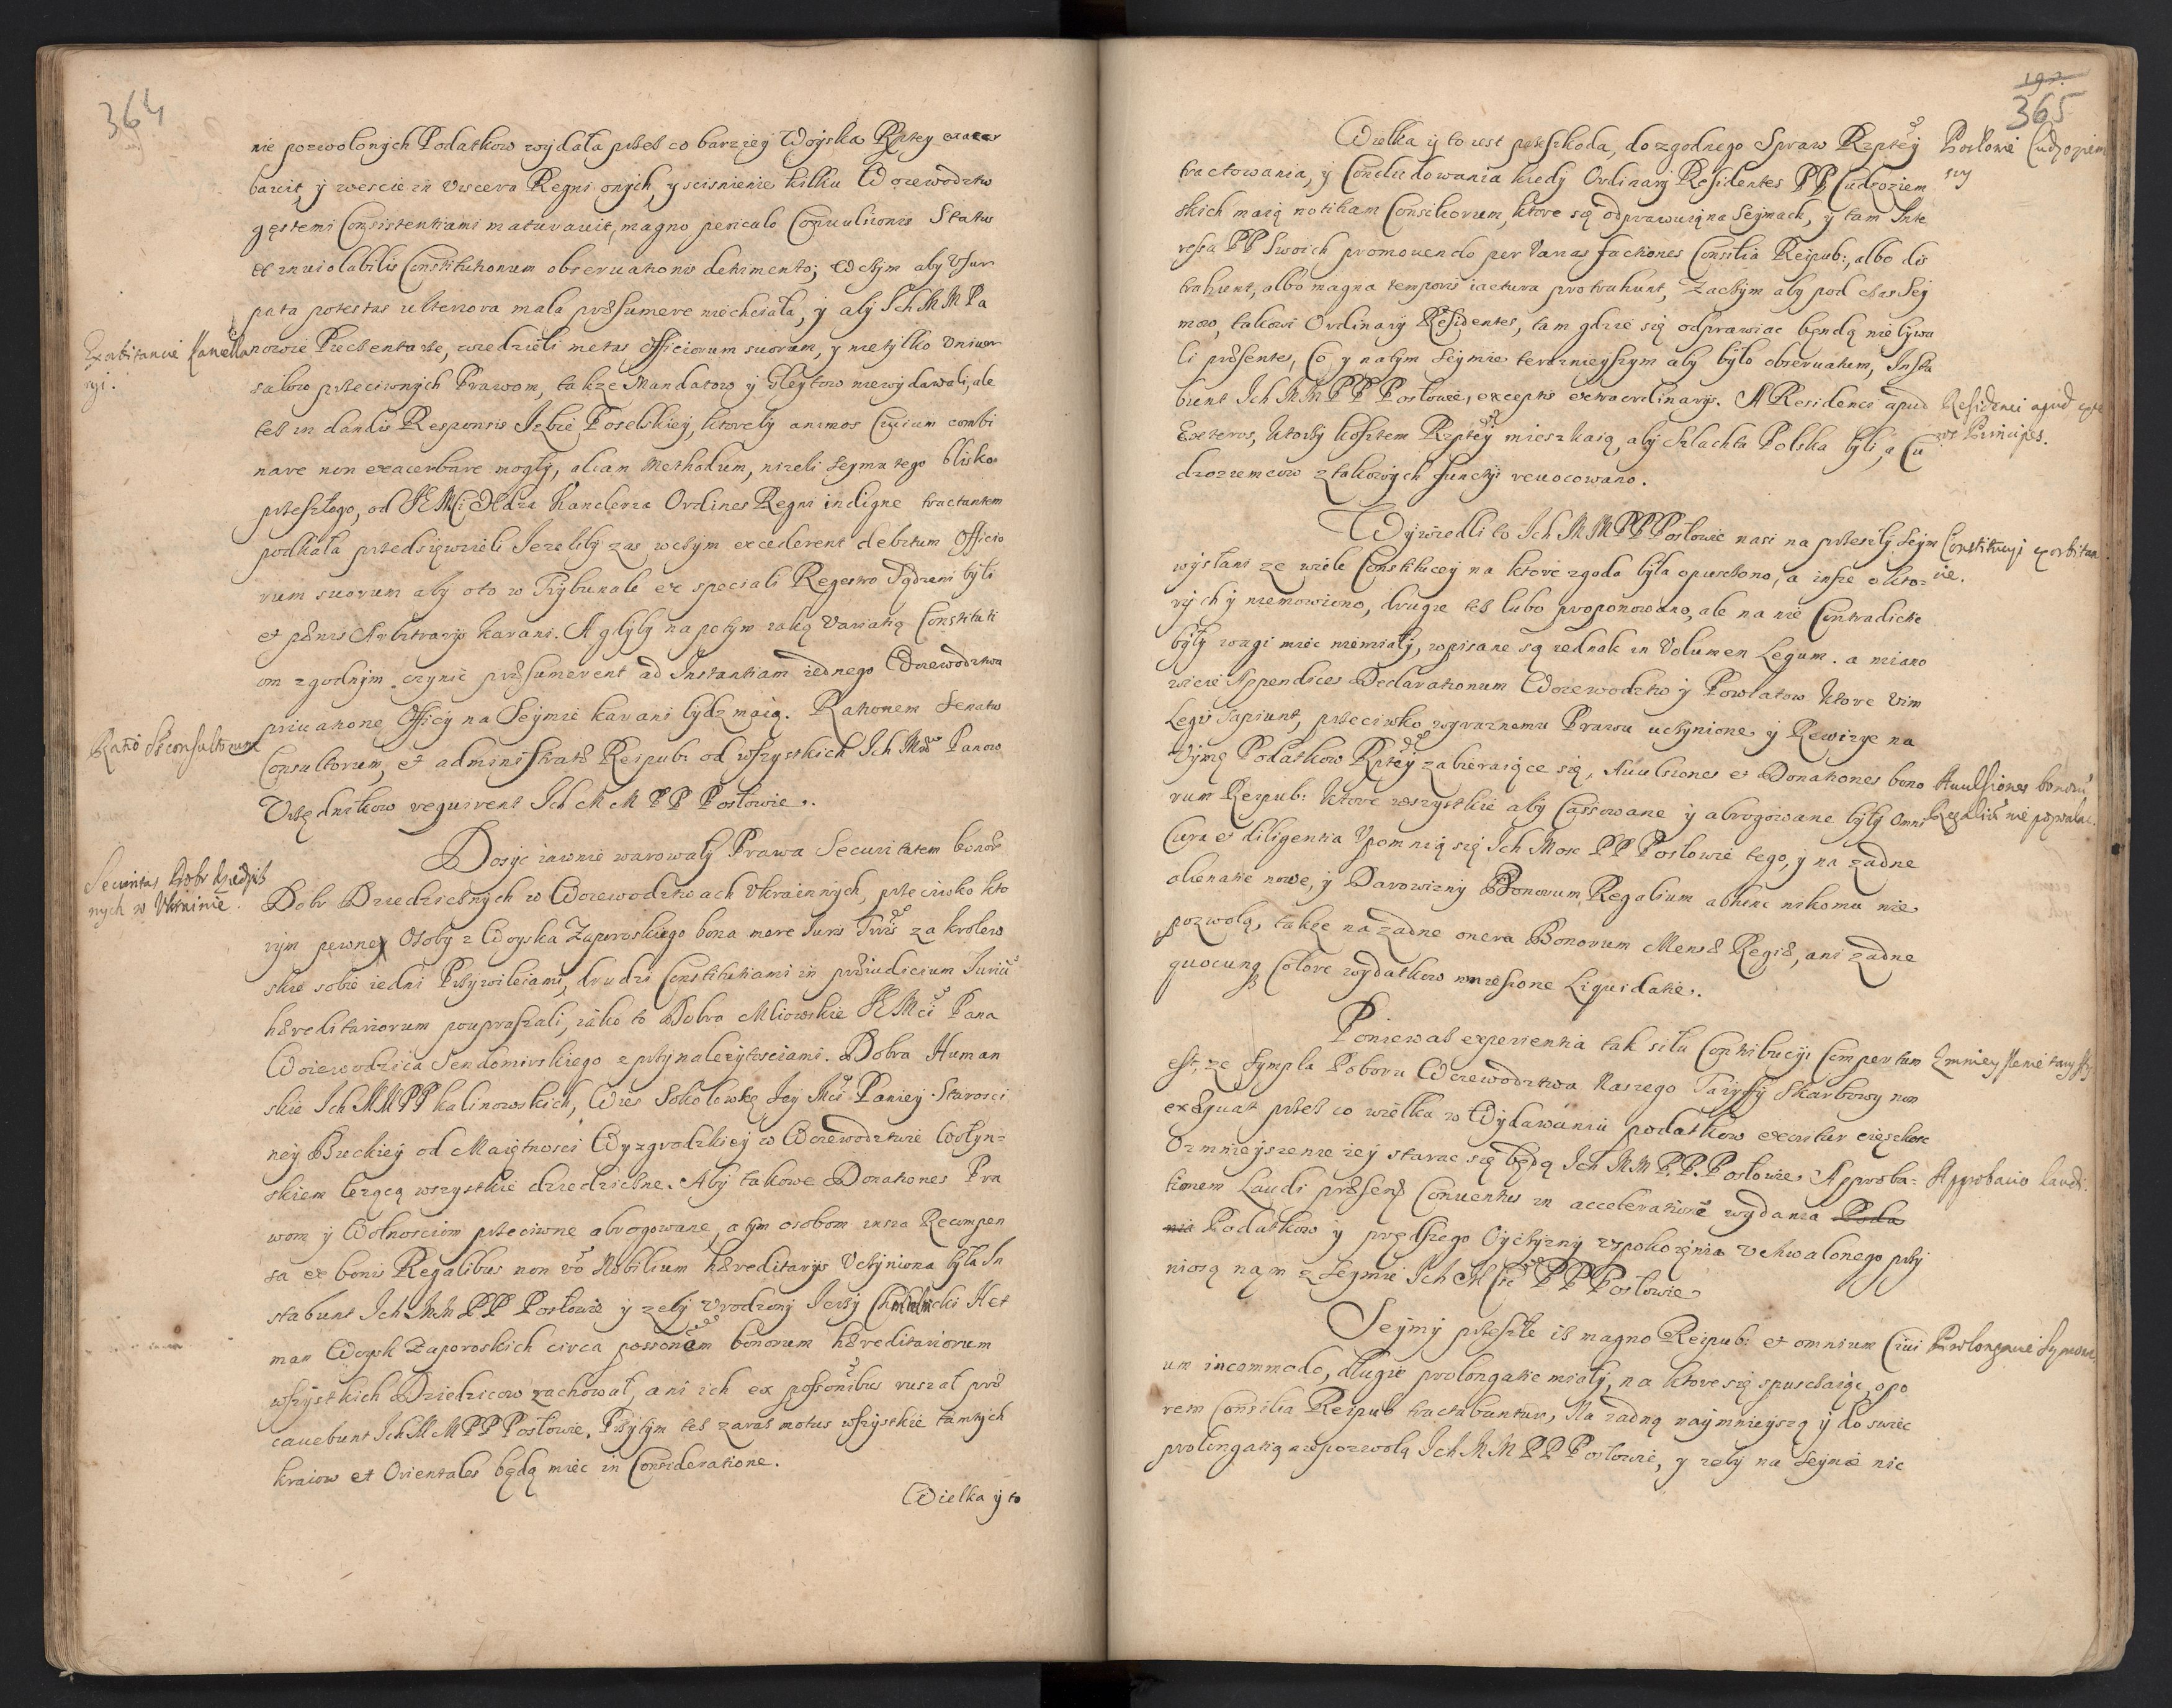 364
nie pozwolonych Podatkow wydała przez co barziey Woyska Rzptey exacer
bavit, y wescie in viscera Regni onych, y scisnienie kilku Woiewodztw
gęstemi Consistentiami maturavit, magno periculo Convulsionis Status
et inviolabilis Constitutionum observationis detrimento; Wczym aby Usur
pata potestas ulteriora mala præsumere niechciała, y aby Ich M M Pa
Exorbitancie Kancella
ryi.
nowie Pieczentarze, wiedzieli metas officiorum suorum, y nietylko Univer
sałow przeciwnych Prawom, takze Mandatow y Gleytow niewydawali, ale
tez in dandis Responsis Izbie Poselskiey, ktoreby animos Civium combi
nare non exacerbare mogły, aliam Methodum, nizeli Seymu tego blisko
przeszłego, od JE Mci Xdza Kanclerza Ordines Regni indigne tractantem
podkała przedsięwzieli Jezeliby zas wczym excederent debitum Officio
rum suorum aby oto w Trybunale ex speciali Regestro Sądzeni byli
et pænis Arbitrarijs karani. A gdyby napotym iaką Variatią Constituti
om zgodnym czynić præsumerent ad Instantiam iednego Woiewodztwa
privatione Officij na Seymie karani bydz maią. Rationem Senatus
Ratio Sconsultorum
Consultorum, et administratæ Reipub: od wszystkich Ich Mciow Panow
Urzędnikow requirent Ich M M P P Posłowie.
Dosyc iawnie warowały Prawa Securitatem bonor
Securitas Dobr dziedzicz
nych w Ukrainie.
Dobr Dziedzicznych w Woiewodztwach Ukrainnych, przeciwko kto
rym pewne Osoby z Woyska Zaporoskiego bona mere Juris Trris za krolew
skie sobie iedni Przywileiami, drudzi Constitutiami in præiudicium Juriu
hæreditariorum poupraszali, iáko to Dobra Mliowskie JE Mci Pana
Woiewodzica Sendomirskiego z przynależytosciami. Dobra Human
skie Ich M M P P Kalinowskich, Wies Sokołowkę Jey Mci Paniey Starosci
ney Buckiey od Maiętnosci Wyzgrodzkiey w Woiewodztwie Wołyn=
skiem lezącą wszystkie dziedziczne. Aby takowe Donationes Pra
wom y Wolnosciom przeciwne abrogowane, a tym osobom insza Recompen
sa ex bonis Regalibus non vo Nobilium hæreditarijs Uczyniona była In
stabunt Ich M M P P Posłowie y zeby Urodzony Jerzy Chmielnicki Het
man Woysk Zaporoskich circa possonem bonorum hæreditariorum
wszystkich Dziedzicow zachował, ani ich ex possonibus ruszał præ
cavebunt Ich M M P P Posłowie. Przytym tez zaraz motus wszystkie tamtych
kraiow et Orientales będą mieć in Consideratione.
Wielka y to
365
Wielka y to iest przeszkoda, do zgodnego Spraw Rzptey
Posłowie Cudzoziem
scy
tractowania, y Concludowania kiedy Ordinarij Residentes P P Cudzoziem
skich maią notitiam Consiliorum, ktore są odprawuią na Seymach, y tam Inte
ressa P P Swoich promovendo per varias factiones Consilia Reipub:, albo dis
trahunt, albo magna temporis iactura protrahunt, Zaczym aby pod czas Sey
mow, takowi Ordinarij Residentes, tam gdzie się odprawiac będą nie bywa
li præsentes, Co y natym Seymie teraznieyszym aby było observatum, Insta
bunt Ich M M P P Posłowie, exceptis extraordinarijs. A Residenci apud
Residenci apud exte
ros Principes.
Exteros, ktorzy kosztem Rzptey mieszkaią, aby Szlachta Polska byli, a Cu
dzoziemcow z takowych functiy revocowano.
Wywiedli to Ich M M P P Posłowie nasi na przeszły Seym
Constitucyi exorbitan
cie.
wysłani ze wiele Constitucey na ktore zgoda była opuszczono, a insze o kto=
rych y niemowiono, drugie tez lubo proponowano, ale na nie Contradictie
były wagi mieć niemiały, wpisane są iednak in Volumen Legum. a miano
wicie Appendices Declarationum Woiewodztw y Powiatow ktore vim
Legis sapiunt, przeciwko wyraznemu Prawu uczynione y Rewizye na
Uymę Podatkow Rptey zabieraiące się, Avulsiones et Donationes bono
Avulsiones bonoru
Regaliu nie pozwalac.
rum Reipub: ktore wszystkie aby Cassowane y abrogowane były Omni
Cura et diligentia Upomnią się Ich Mosc P P Posłowie tego, y na zadne
alienatie nowe, y Darowizny Bonorum Regalium abhinc nikomu nie
pozwolą, takze na zadne onera Bonorum Mensæ Regiæ, ani zadne
quocunq Colore wydatkow wniesione Liquidatie.
Poniewaz experientia tak siłu Contribucyi Compertum
Zmnieyszenie taryffy
est, ze Sympla Poboru Woiewodztwa Naszego Taryffy Skarbowy non
exæquat przez co wielka w Wydawaniu podatkow exoritur cięszkosc
Ozmnieyszenie iey starac się będą Ich M M P. P. Posłowie. Approba=
Approbatio Laudi.
tionem Laudi præsentis Conventus in accelerationē wydania
Podatkow y prędszego Oyczyzny uspokoięnia uchwalonego przy
niosą nam z Seymu Ich Mśc P P Posłowie
Seymy przeszłe iz magno Reipub: et omnium Civi
Prolongacie Seymow
um incommodo, długie prolongatie miały, na ktore się spuszczaiąc, opo
rem Consilia Reipub tractabuntur, Na zadną naymnieyszą y do swiec
prolongatią niepozwolą Ich M M P P Posłowie, y zeby na Seymie nic